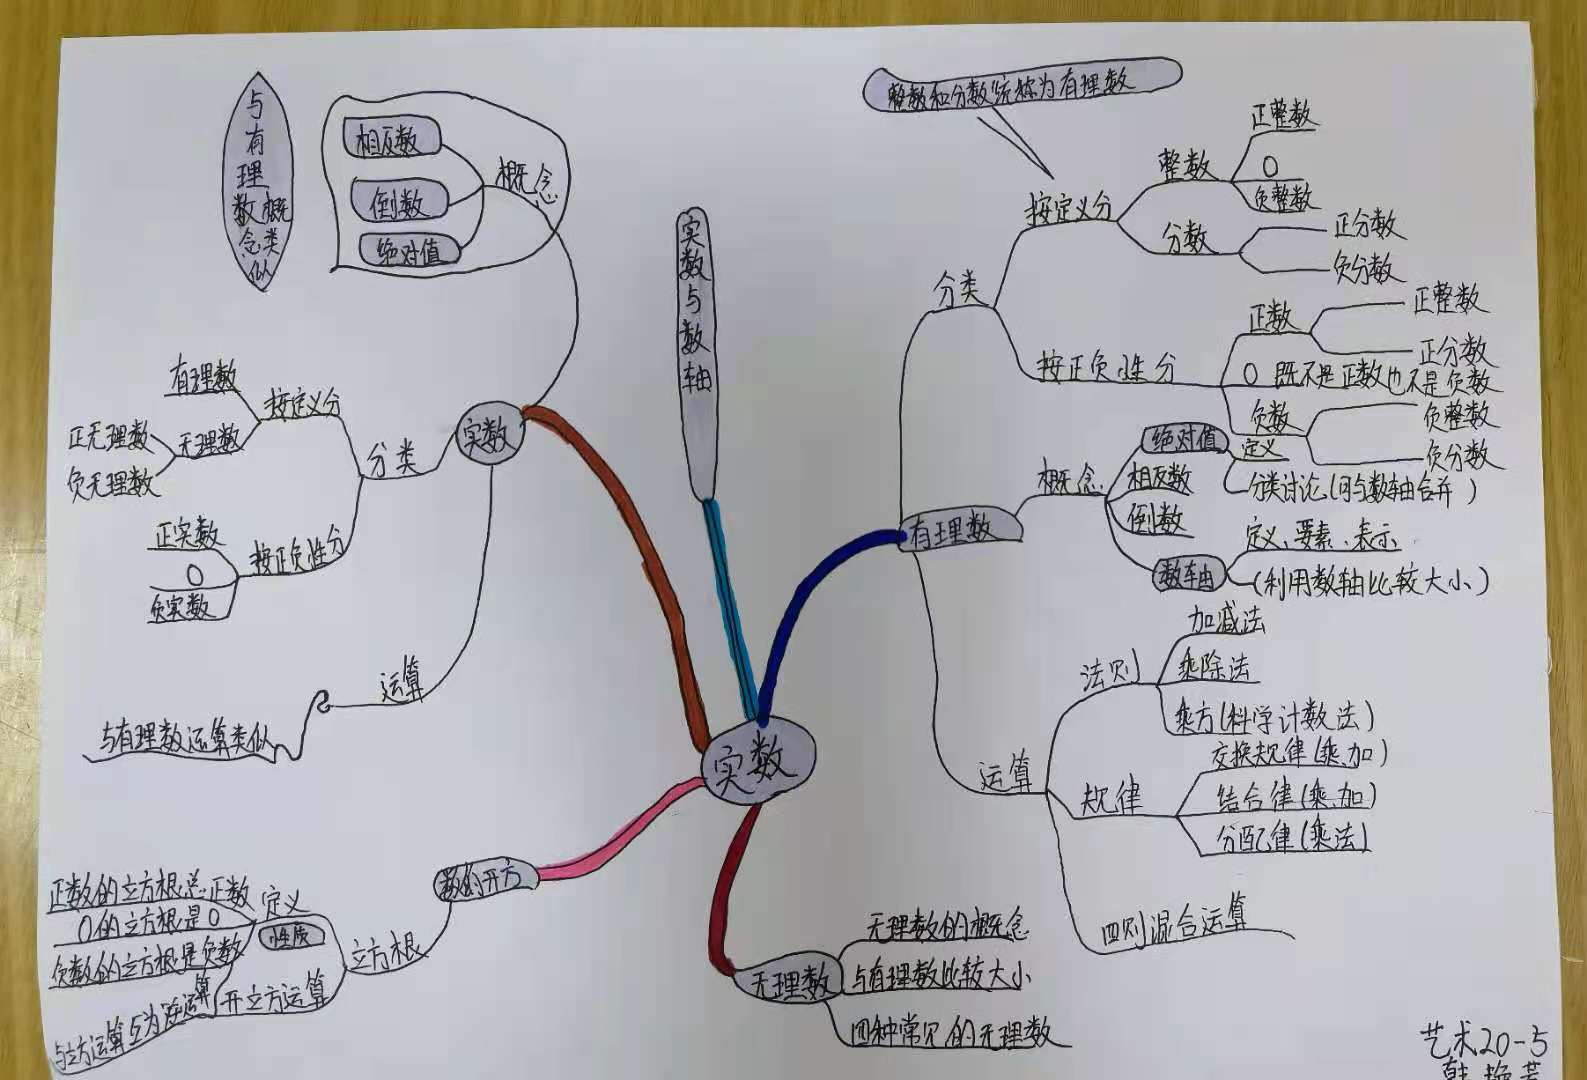 与有理数概念类似
概念
相反数
倒数
绝对值
实数与数轴
整数和分数统称为有理数
分类
按定义分
整数
正整数
0
负整数
分数
正分数
负分数
按正负性分
正数
正整数
正分数
0 既不是正数也不是负数
负数
负整数
负分数
有理数
概念
绝对值
定义
分类讨论(可与数轴合并)
相反数
倒数
数轴
定义、要素、表示
(利用数轴比较大小)
运算
法则
加减法
乘除法
乘方(科学计数法)
规律
交换规律(乘.加)
结合律(乘.加)
分配律(乘法)
四则混合运算
实数
分类
按定义分
有理数
无理数
正无理数
负无理数
按正负性分
正实数
0
负实数
运算
与有理数运算类似
实数
数的开方
立方根
定义
性质
正数的立方根总正数
0的立方根是0
负数的立方根是负数
开立方运算
与立方运算互为逆运算
无理数
无理数的概念
与有理数比较大小
四种常见的无理数
艺术20-5